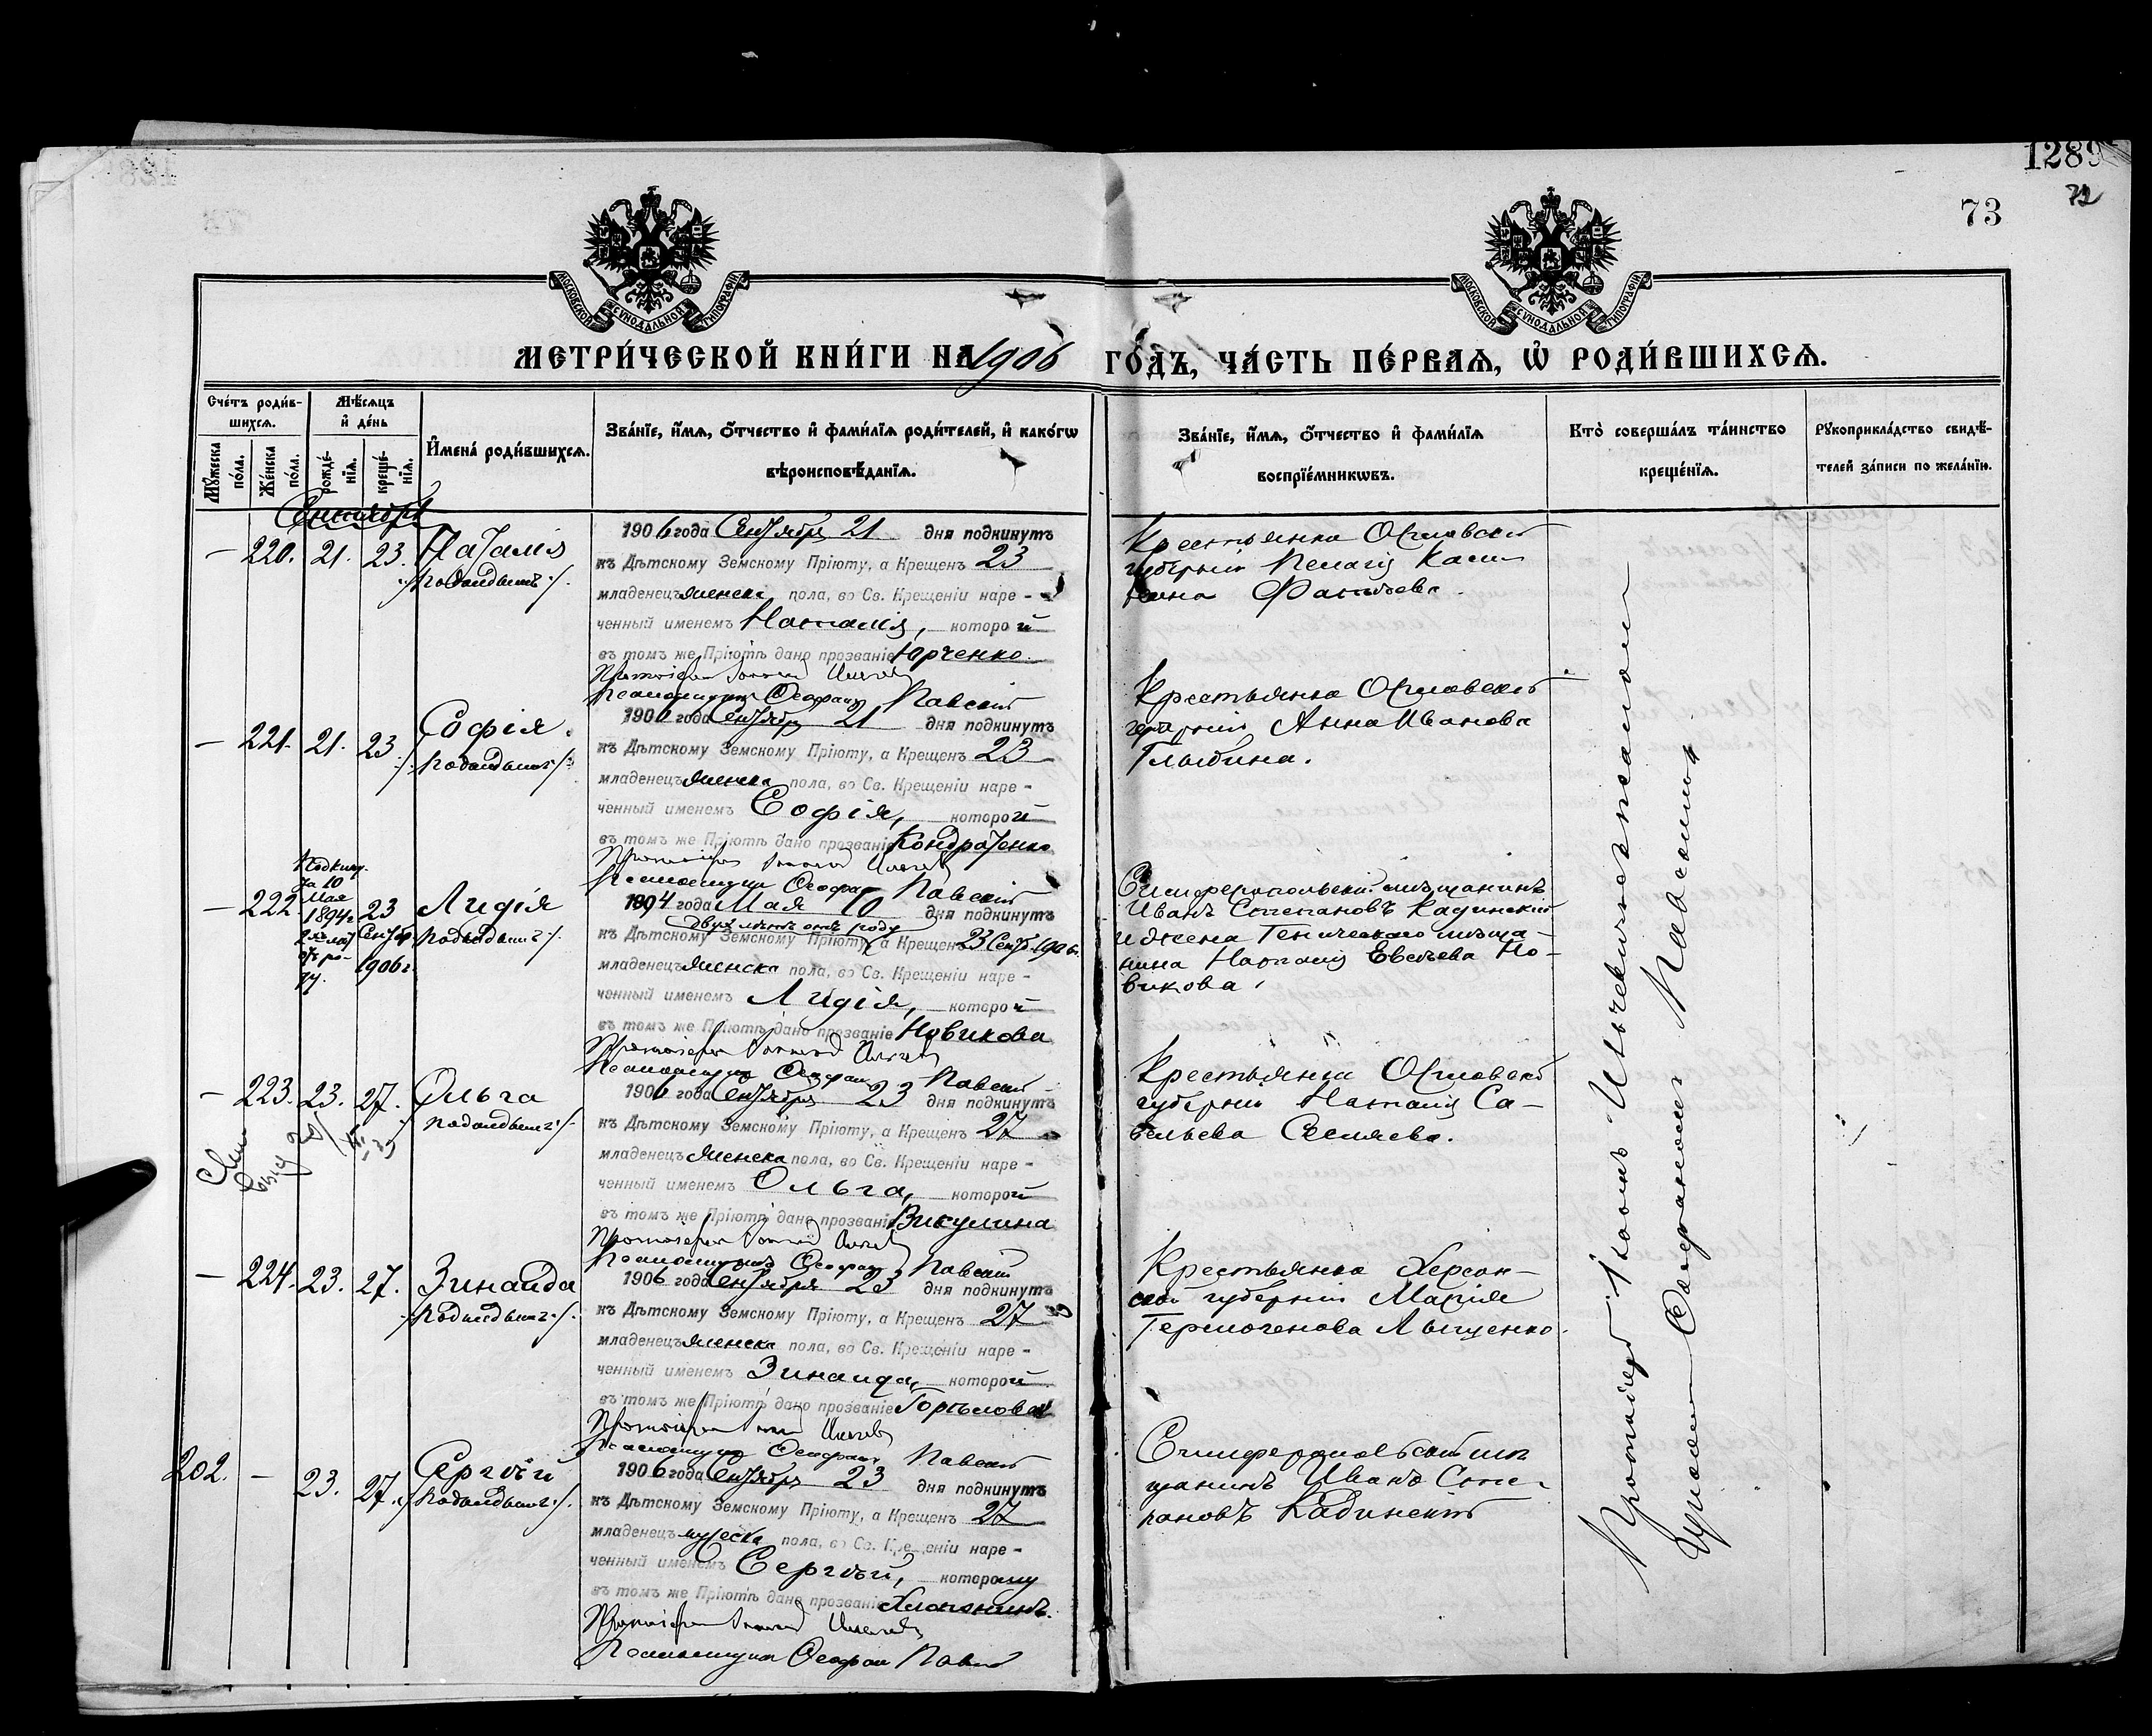 1289
73
72
МОСКОВСКОЙ СѴНОДАЛЬНОЙ ТИПОГРАФІИ
МОСКОВСКОЙ СѴНОДАЛЬНОЙ ТИПОГРАФІИ
МЕТРИ́ЧЕСКОЙ КНИ́ГИ НА 1906 ГО́ДЪ, ЧА́СТЬ ПЕ́РВАѦ, Ѡ҆ РОДИ́ВШИХСѦ.
Сче́тъ роди́в-
шихсѧ.
Мꙋ́жеска по́ла.
Же́нска по́ла.
Мѣ́сѧцъ и҆ де́нь
рожде́-нїѧ.
креще́-нїѧ.
И҆мена̀ роди́вшихсѧ.
Зва́нїе, и҆́мѧ, ѻ҆́тчество и҆ фами́лїѧ роди́телей, и҆ како́гѡ
вѣроисповѣ́данїѧ.
Зва́нїе, и҆́мѧ, ѻ҆́тчество и҆ фами́лїѧ
воспрїе́мникѡвъ.
Кто̀ соверша́лъ та́инство
креще́нїѧ.
Рꙋкоприкла́дство свидѣ́-
телей за́писи по жела́нїю.
Сентябрь
— 220. 21. 23. Наталія
/Подкидышъ/.
1906 года Сентября 21 дня подкинутъ
къ Дѣтскому Земскому Пріюту, а Крещенъ 23
младенецъ женска пола, во Св. Крещеніи наре-
ченный именемъ Наталія, которой
въ томъ же Пріютѣ дано прозваніе Юрченко.
Псаломщикъ Ѳеофанъ Павскій
Крестьянка Орловской
губерніи Пелагія
— 221. 21. 23 Софія.
/Подкидышъ/
1906 года Сентября 21 дня подкинутъ
къ Дѣтскому Земскому Пріюту, а Крещенъ 23
младенецъ женска пола, во Св. Крещеніи наре-
ченный именемъ Софія, которой
въ томъ же Пріютѣ дано прозваніе Кондратенко
Псаломщикъ Ѳеофанъ Павскій
Крестьянка Орловской
губерніи Анна Иванова
Глыбина.
— 222
Подкину-
та 10
Мая
1894 г.
2хъ лѣт
отъ ро-
ду.
23
Сентяб.
1906 г.
Лидія
Подкидышъ/.
1894 года Мая 10 дня подкинутъ
двухъ лѣтъ отъ роду
къ Дѣтскому Земскому Пріюту, а Крещенъ 23 Сент. 1906 г.
младенецъ женска пола, во Св. Крещеніи наре-
ченный именемъ Лидія, которой
въ томъ же Пріютѣ дано прозваніе Новикова
Псаломщикъ Ѳеофанъ Павскій
Симферопольскій мѣщанинъ
Иванъ Степановъ Кадинскій
и жена Геническаго мѣща-
нина Наталія Но-
викова.
— 223. 23. 27. Ольга
Подкидышъ/.
1906 года Сентября 23 дня подкинутъ
къ Дѣтскому Земскому Пріюту, а Крещенъ 27
младенецъ женска пола, во Св. Крещеніи наре-
ченный именемъ Ольга, которой
въ томъ же Пріютѣ дано прозваніе Викулина
Псаломщикъ Ѳеофанъ Павскій
Крестьянка Орловской
губерніи Наталія Са-
вельева
— 224. 23. 27. Зинаида
/Подкидышъ/.
1906 года Сентября 23 дня подкинутъ
къ Дѣтскому Земскому Пріюту, а Крещенъ 27
младенецъ женска пола, во Св. Крещеніи наре-
ченный именемъ Зинаида, которой
въ томъ же Пріютѣ дано прозваніе
Псаломщикъ Ѳеофанъ Павскій
Крестьянка Херсон-
ской губерніи Марія
Гермогенова Лыщенко.
202. — 23. 27. Сергѣй
/Подкидышъ/.
1906 года Сентября 23 дня подкинутъ
къ Дѣтскому Земскому Пріюту, а Крещенъ 27
младенецъ мужеска пола, во Св. Крещеніи наре-
ченный именемъ Сергѣй, которому
въ томъ же Пріютѣ дано прозваніе
Псаломщикъ Ѳеофанъ Павскій
Симферопольскій мѣ-
щанинъ Иванъ Сте-
пановъ Кадинскій
Протоіерей
Ѳеофаномъ Павскимъ